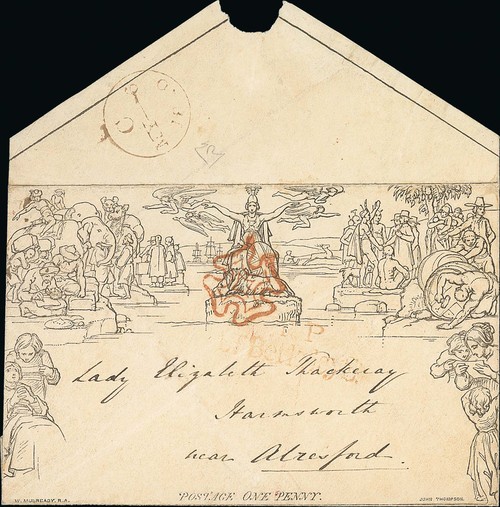 Lady Elizabeth Thackeray
Harmsworth
near Alresford.
W. MULREADY, R.A.
POSTAGE ONE PENNY.
JOHN THOMPSON.